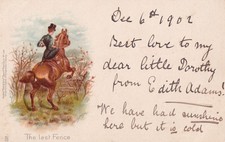 Dec 6th 1902
Best love to my
dear little Dorothy
from Edith Adams.
We have had sunshine
here but it is cold
The Last Fence